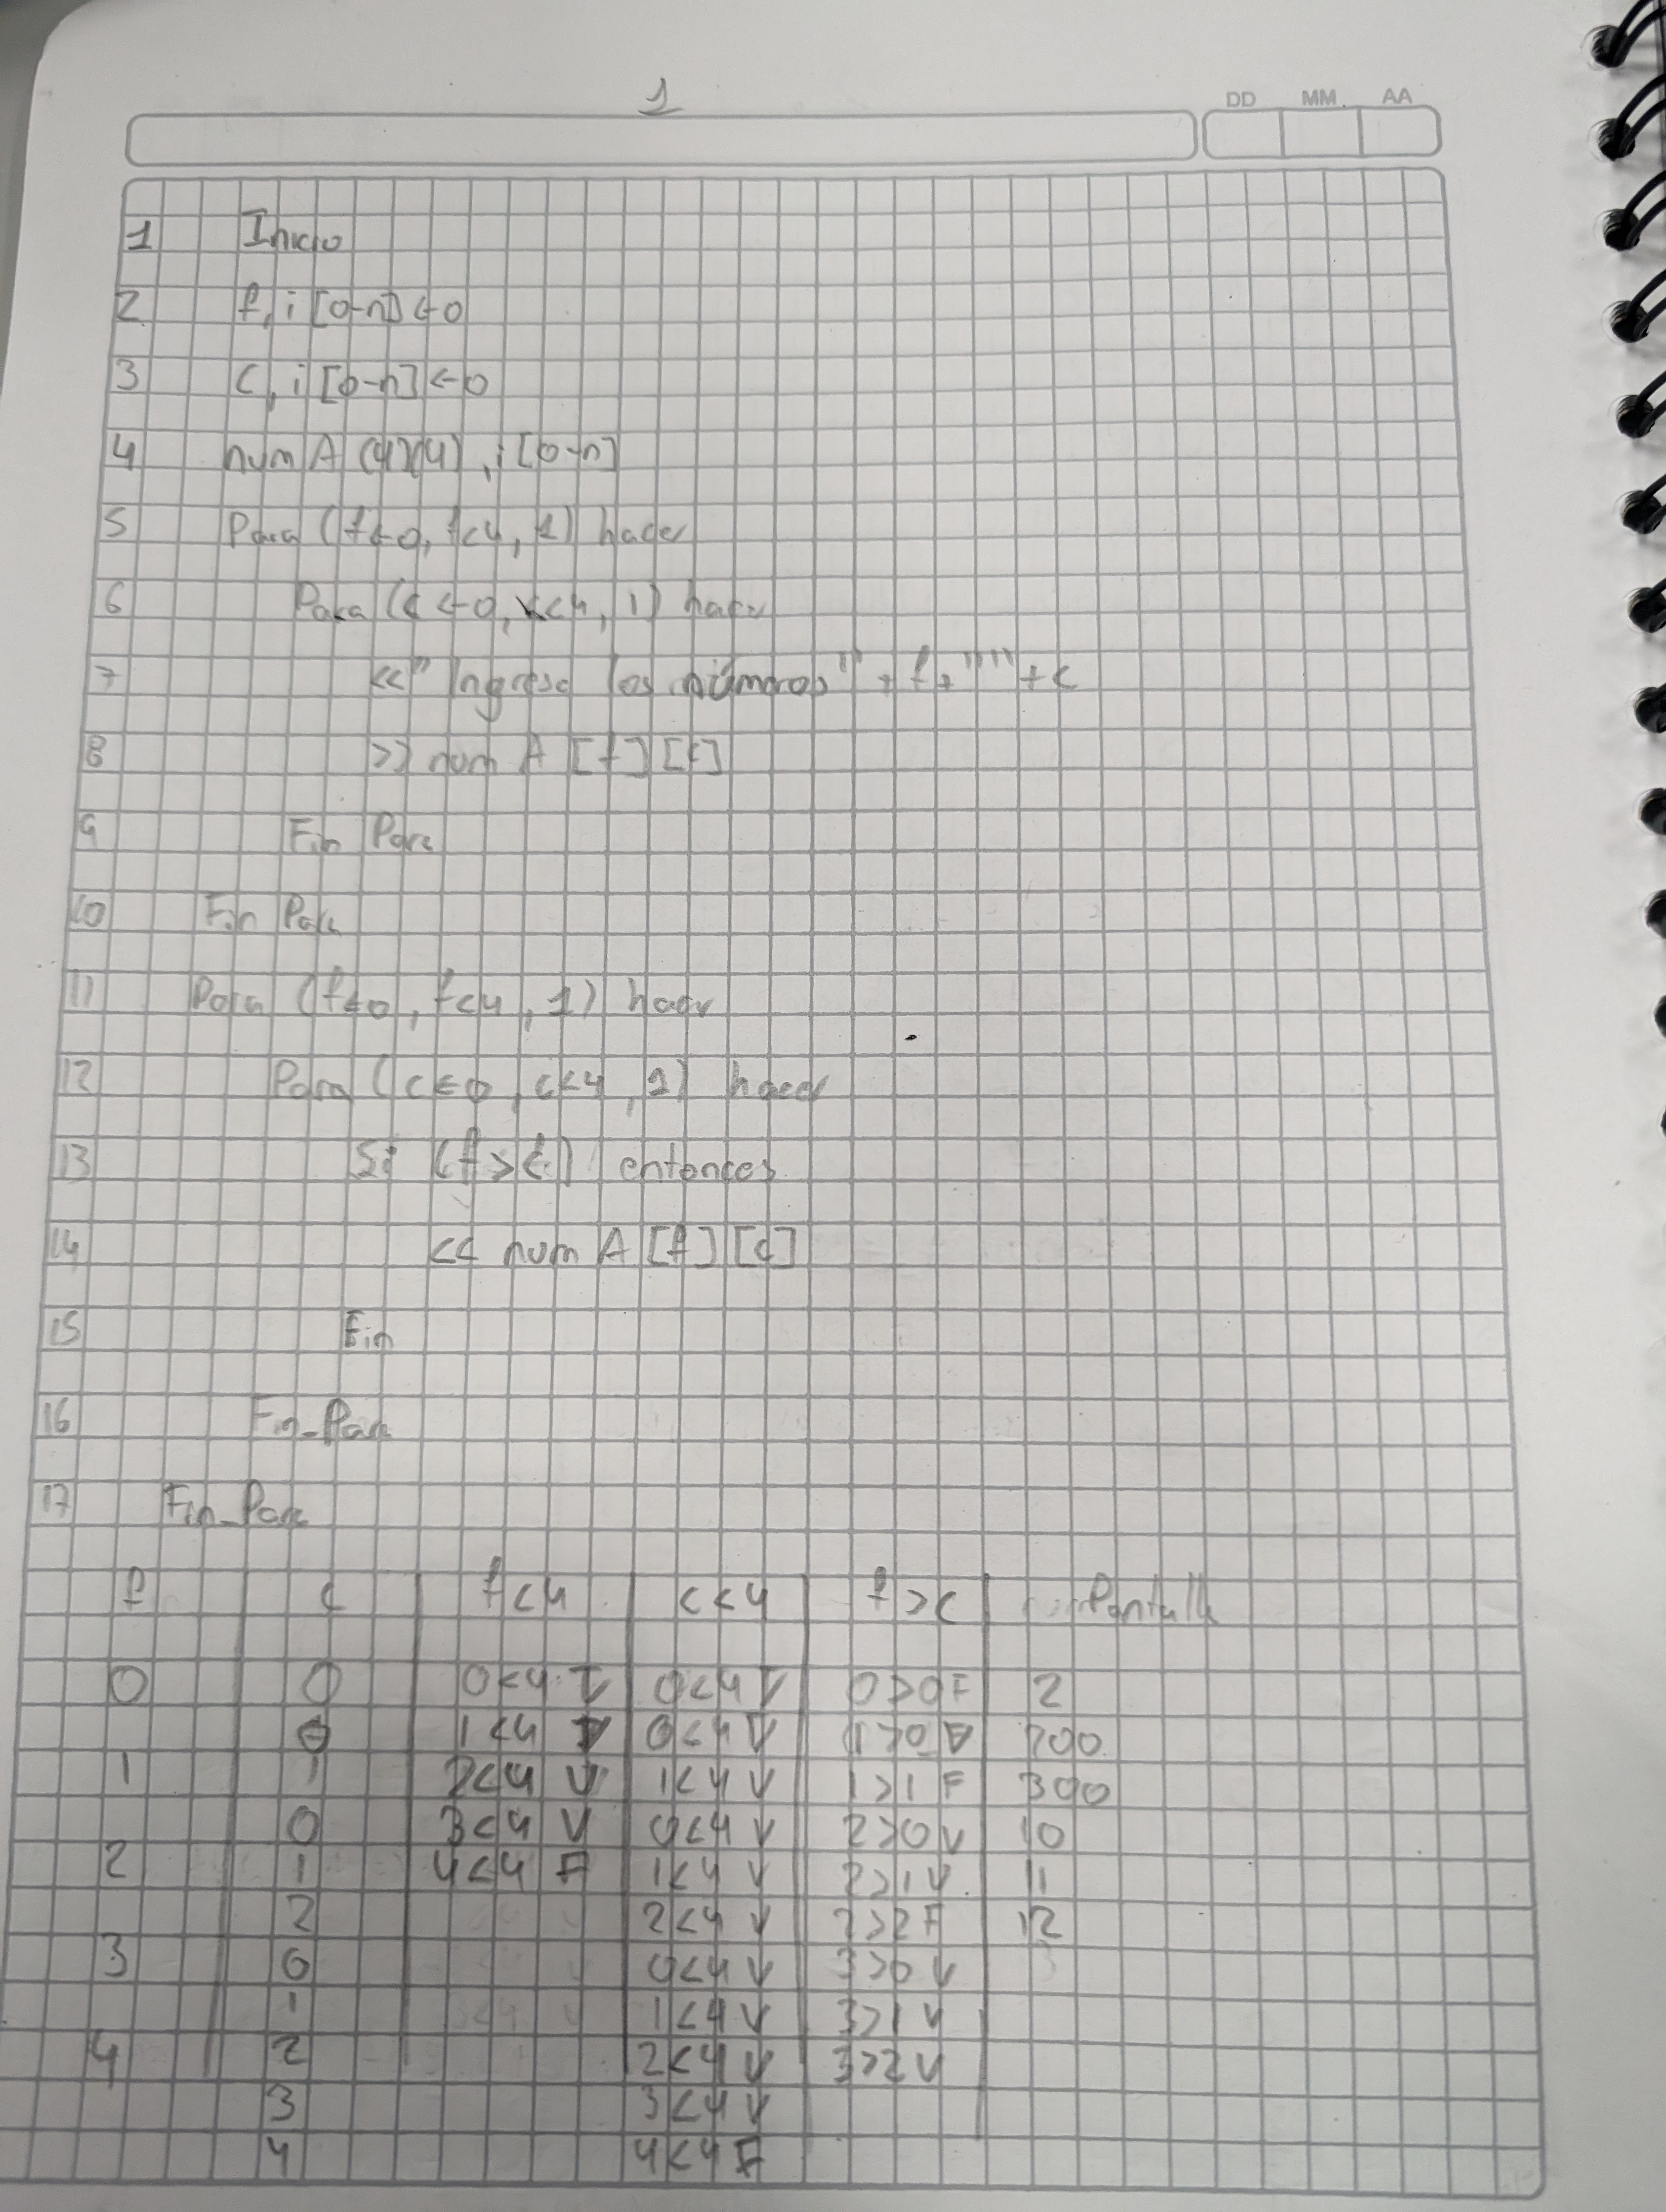 1
DD MM AA
1 Inicio
2 f, i [0-n] <-0
3 c, i [0-n] <-0
4 numA (4)(4), i [0-n]
5 Para (f<-0, f<4, 1) hacer
6 Para (c<-0, c<4, 1) hacer
7 <<"Ingresa los números" + f+""+c
8 >> num A [f] [c]
9 Fin Para
10 Fin Para
11 Para (f<-0, f<4, 1) hacer
12 Para (c<-0, c<4, 1) hacer
13 Si (f>c) entonces
14 << num A [f] [c]
15 Fin
16 Fin_Para
17 Fin_Para
f c f<4 c<4 f>c Pantalla
0 0 0<4 V 0<4 V 0>0 F 2
0 1<4 V 0<4 V 1>0 V 200
1 1 2<4 V 1<4 V 1>1 F 300
0 3<4 V 0<4 V 2>0 V 10
2 1 4<4 F 1<4 V 2>1 V 11
2 2<4 V 2>2 F 12
3 0 0<4 V 3>0 V
1 1<4 V 3>1 V
4 2 2<4 V 3>2 V
3 3<4 V
4 4<4 F